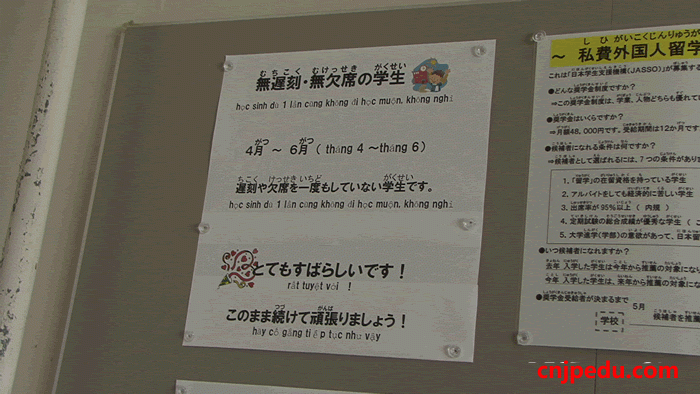 むちこく むけっせき がくせい
無遅刻・無欠席の学生
học sinh dù 1 lần cũng không đi học muộn, không nghỉ
がつ がつ
4月 ～ 6月 ( tháng 4 ～tháng 6)
ちこく けっせき いちど がくせい
遅刻や欠席を一度もしていない学生です。
học sinh dù 1 lần cũng không đi học muộn, không nghỉ
とてもすばらしいです！
rất tuyệt vời !
つづ がんば
このまま続けて頑張りましょう！
hãy cố gắng tiếp tục như vậy
しひがいこくじんりゅうが
～ 私費外国人留学
これは「日本学生支援機構(JASSO)」が募集する
●どんな奨学金制度ですか？
⇒この奨学金制度は、学業、人物どちらも優れて
●奨学金はいくらですか？
⇒月額48,000円です。受給期間は12か月です
●候補者になれる条件は何ですか？
⇒候補者として選ばれるには、7つの条件があり
1. 「留学」の在留資格を持っている学生
2. アルバイトをしても経済的に苦しい学生
3. 出席率が95%以上（ 内規 ）
4. 定期試験の総合成績が優秀な学生（
5. 大学進学(学部)の意欲があって、日本留
●いつ候補者になれますか？
去年 入学した学生は今年から推薦の対象にな
今年 入学した学生は、来年から推薦の対象にな
●奨学金受給者が決まるまで
5月
学校
候補者を推薦
cnjpedu.com